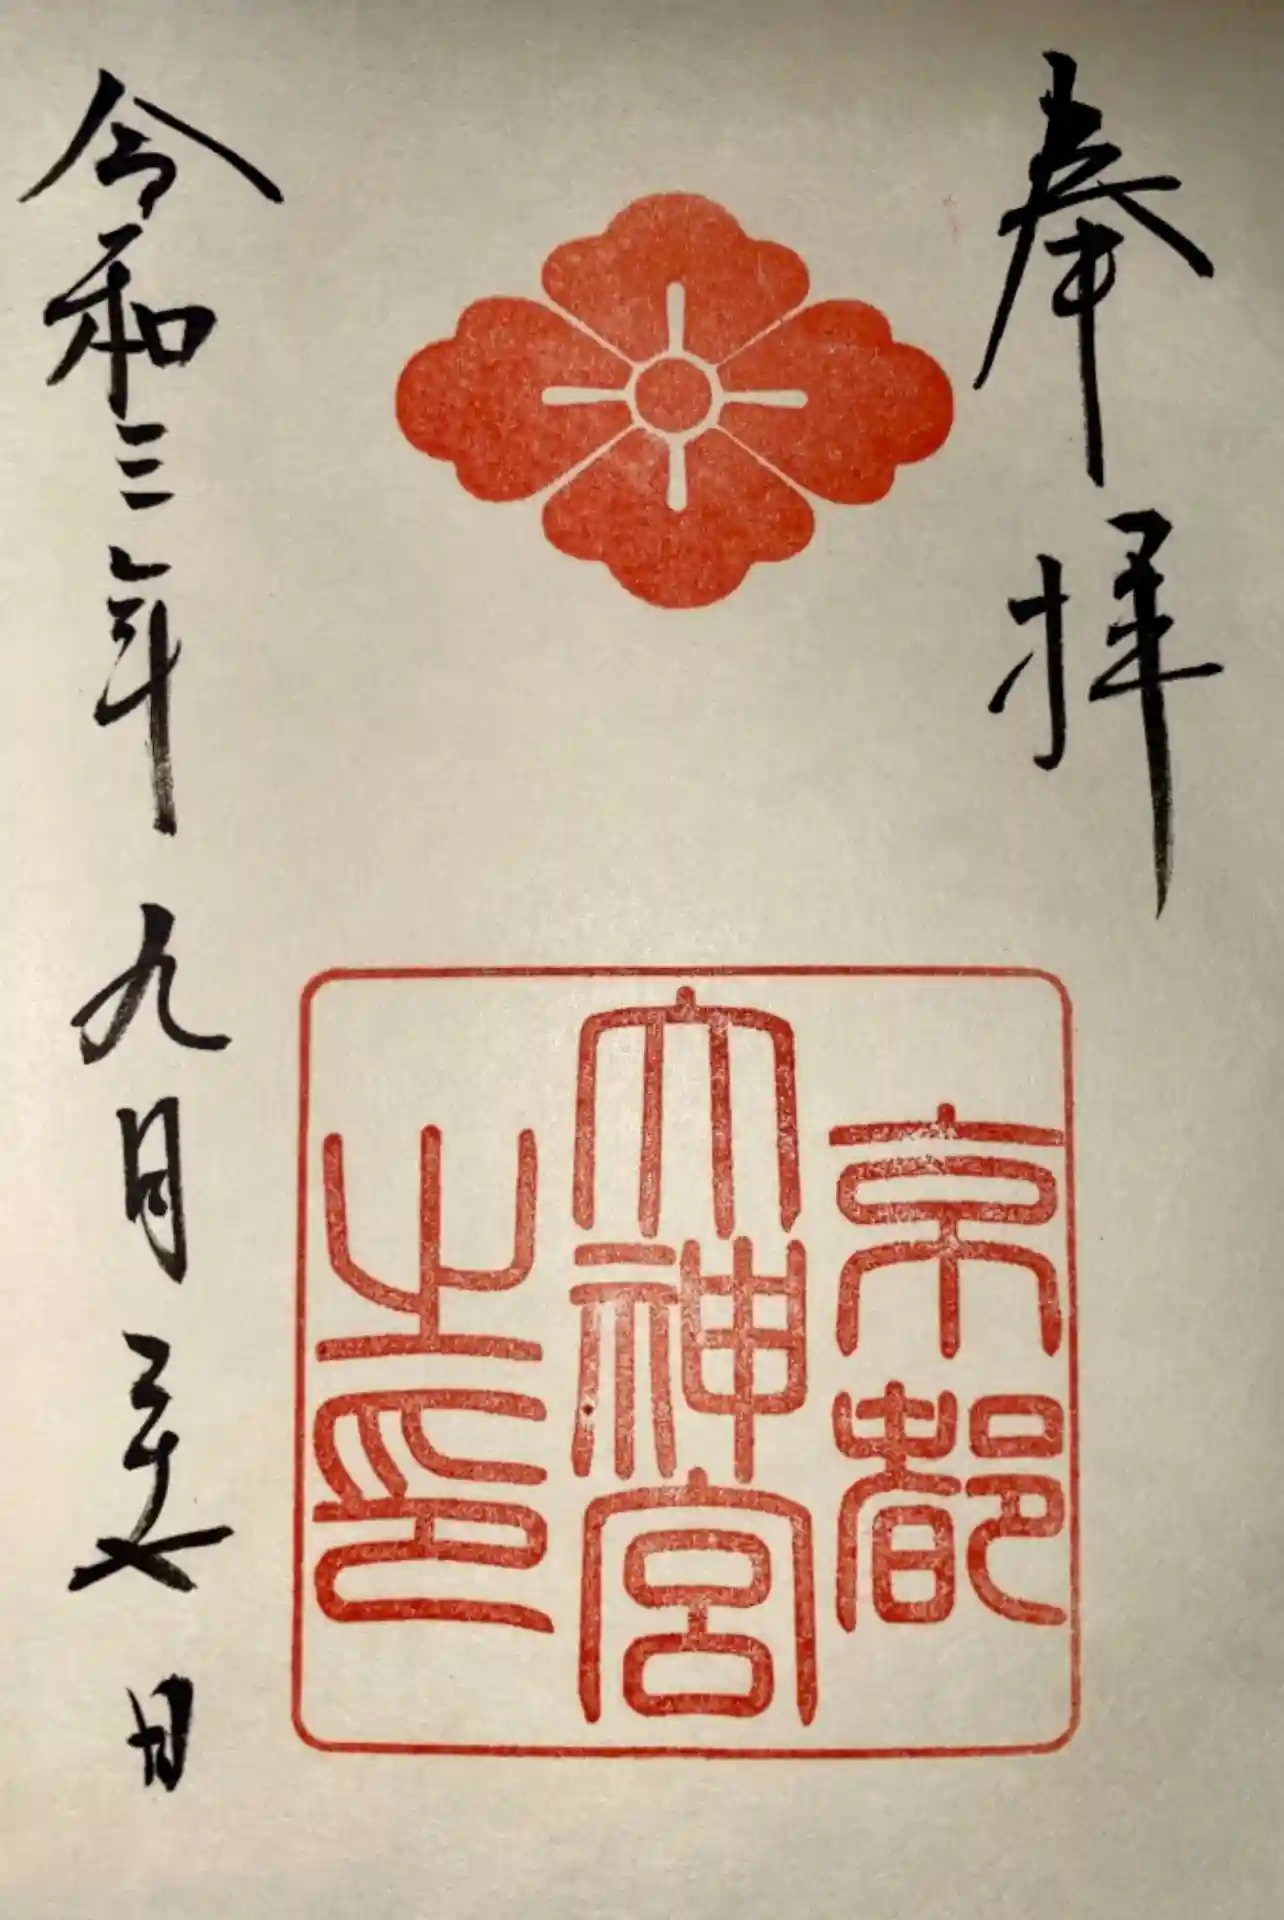 奉拝
京都
大神宮
之印
令和三年九月二十六日